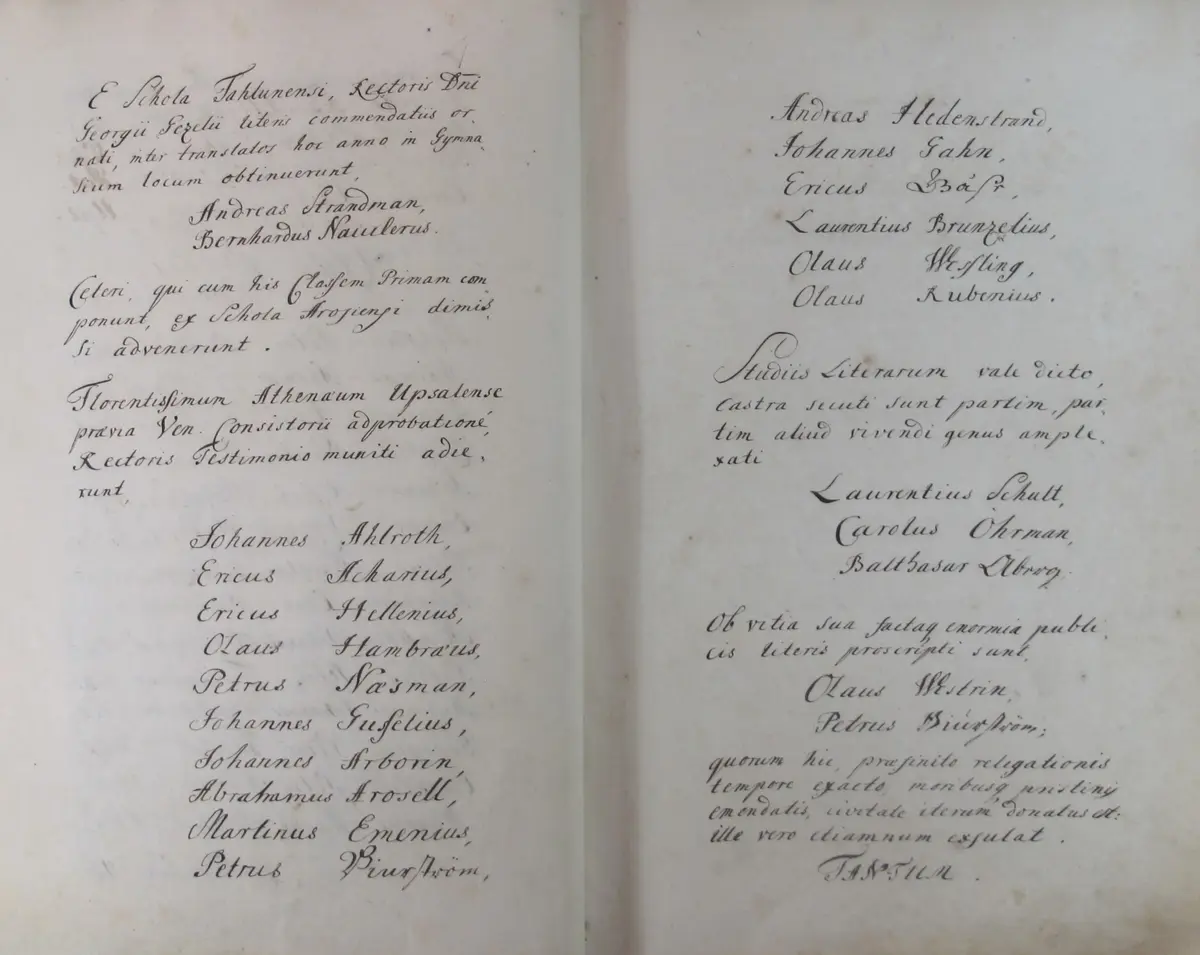 E Schola Fahlunensi, Rectoris Dni
Georgii Gezelii literis commendatiis or-
nati, inter translatos hoc anno in Gymna-
sium locum obtinuerunt,
Andreas Strandman,
Bernhardus Nauclerus.
Ceteri, qui cum his Classem Primam com
ponunt, ex Schola Arosiensi dimis-
si advenerunt.
Florentissimum Athenæum Upsalense
prævia Ven. Consistorii adprobatione,
Rectoris Testimonio muniti adie-
runt,
Johannes Ahlroth,
Ericus Acharius,
Ericus Hellenius,
Olaus Hambræus,
Petrus Næsman,
Johannes Gusselius,
Johannes Arborin,
Abrahamus Arosell,
Martinus Emenius,
Petrus Biurström,
Andreas Hedenstrand,
Johannes Gahn,
Ericus
Laurentius Brunzelius,
Olaus Wessling,
Olaus Rubenius.
Studiis Literarum vale dicto,
castra secuti sunt partim, par-
tim aliud vivendi genus ample-
xati
Laurentius Schult,
Carolus Öhrman,
Balthasar
Ob vitia sua factaq enormia publi-
cis literis proscripti sunt,
Olaus Westrin,
Petrus Biurström;
quorum hic, præfinito relegationis
tempore exacto, moribusq pristinis
emendatis, civitate iterum donatus est:
ille vero etiamnum exsulat.
TANTUM.